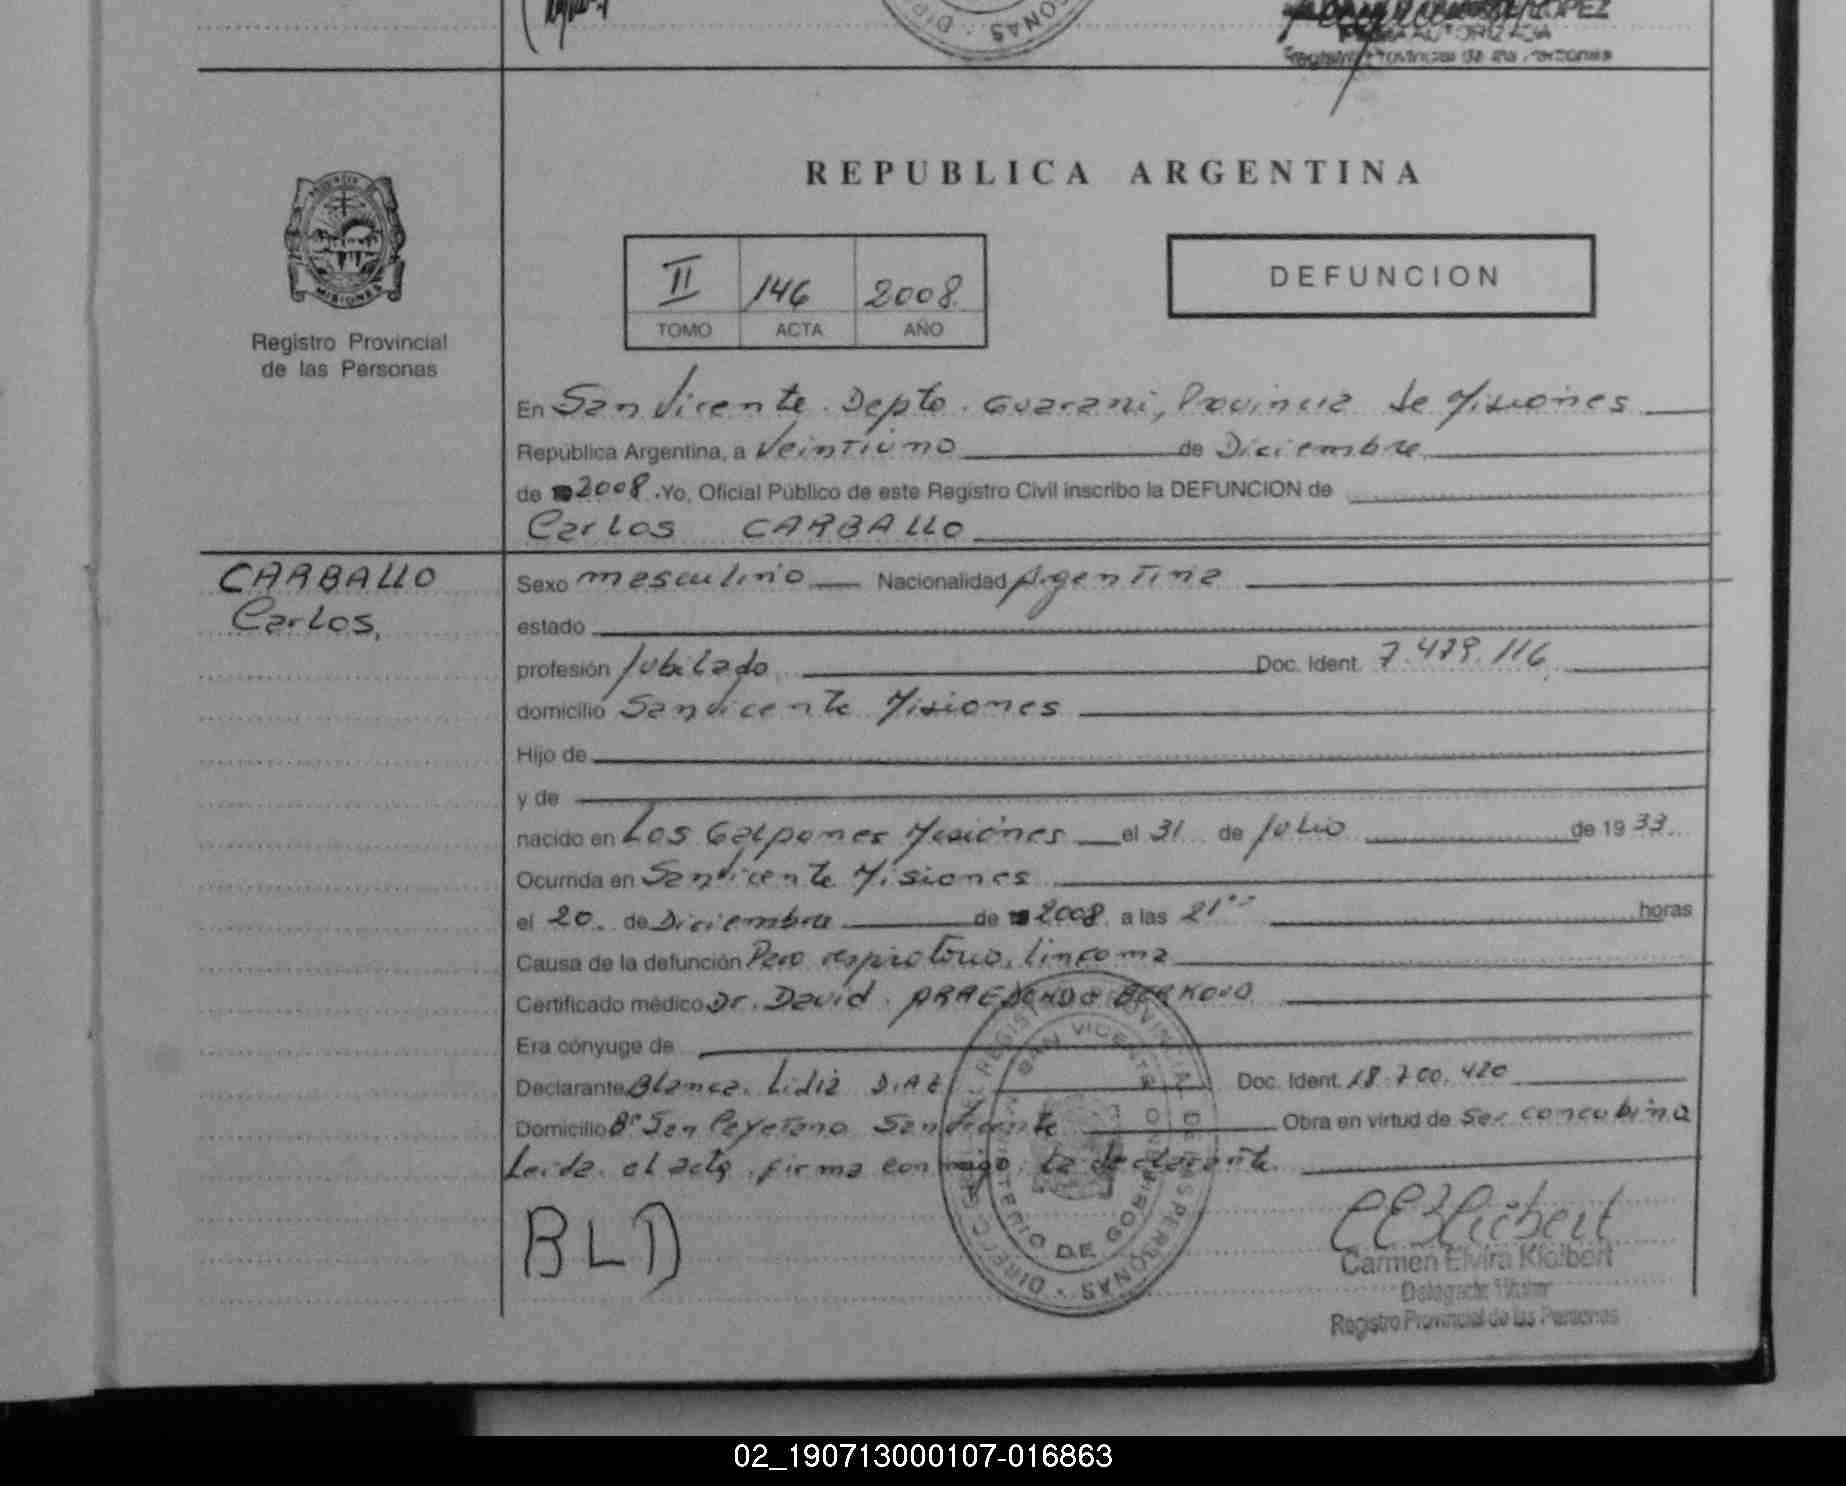 LOPEZ
FIRMA AUTORIZADA
Registro Provincial de las Personas
REPUBLICA ARGENTINA
II 146 2008.
TOMO ACTA AÑO
DEFUNCION
MISIONES
Registro Provincial
de las Personas
En San Vicente. Depto. Guarani, Provincia de Misiones
República Argentina, a Veintiuno de Diciembre
de 2008. Yo, Oficial Público de este Registro Civil inscribo la DEFUNCION de
Carlos CARBALLO
CARBALLO
Carlos,
Sexo masculino Nacionalidad Argentina
estado
profesión Jubilado Doc. Ident. 7.479.116
domicilio San Vicente Misiones
Hijo de
y de
nacido en Los Galpones Misiones el 31 de Julio de 1933
Ocurrida en San Vicente Misiones
el 20. de Diciembre de 2008 a las 21 horas
Causa de la defunción Paro respiratorio, linfoma
Certificado médico Dr. David.
Era cónyuge de
Declarante Blanca. Lidia DIAZ Doc. Ident. 18.700.420
Domicilio B° San Cayetano San Vicente Obra en virtud de ser concubina
Leida el acta firma conmigo la declarante
BLD
Carmen Elvira Kleibert
Delegada Titular
Registro Provincial de las Personas
02_190713000107-016863